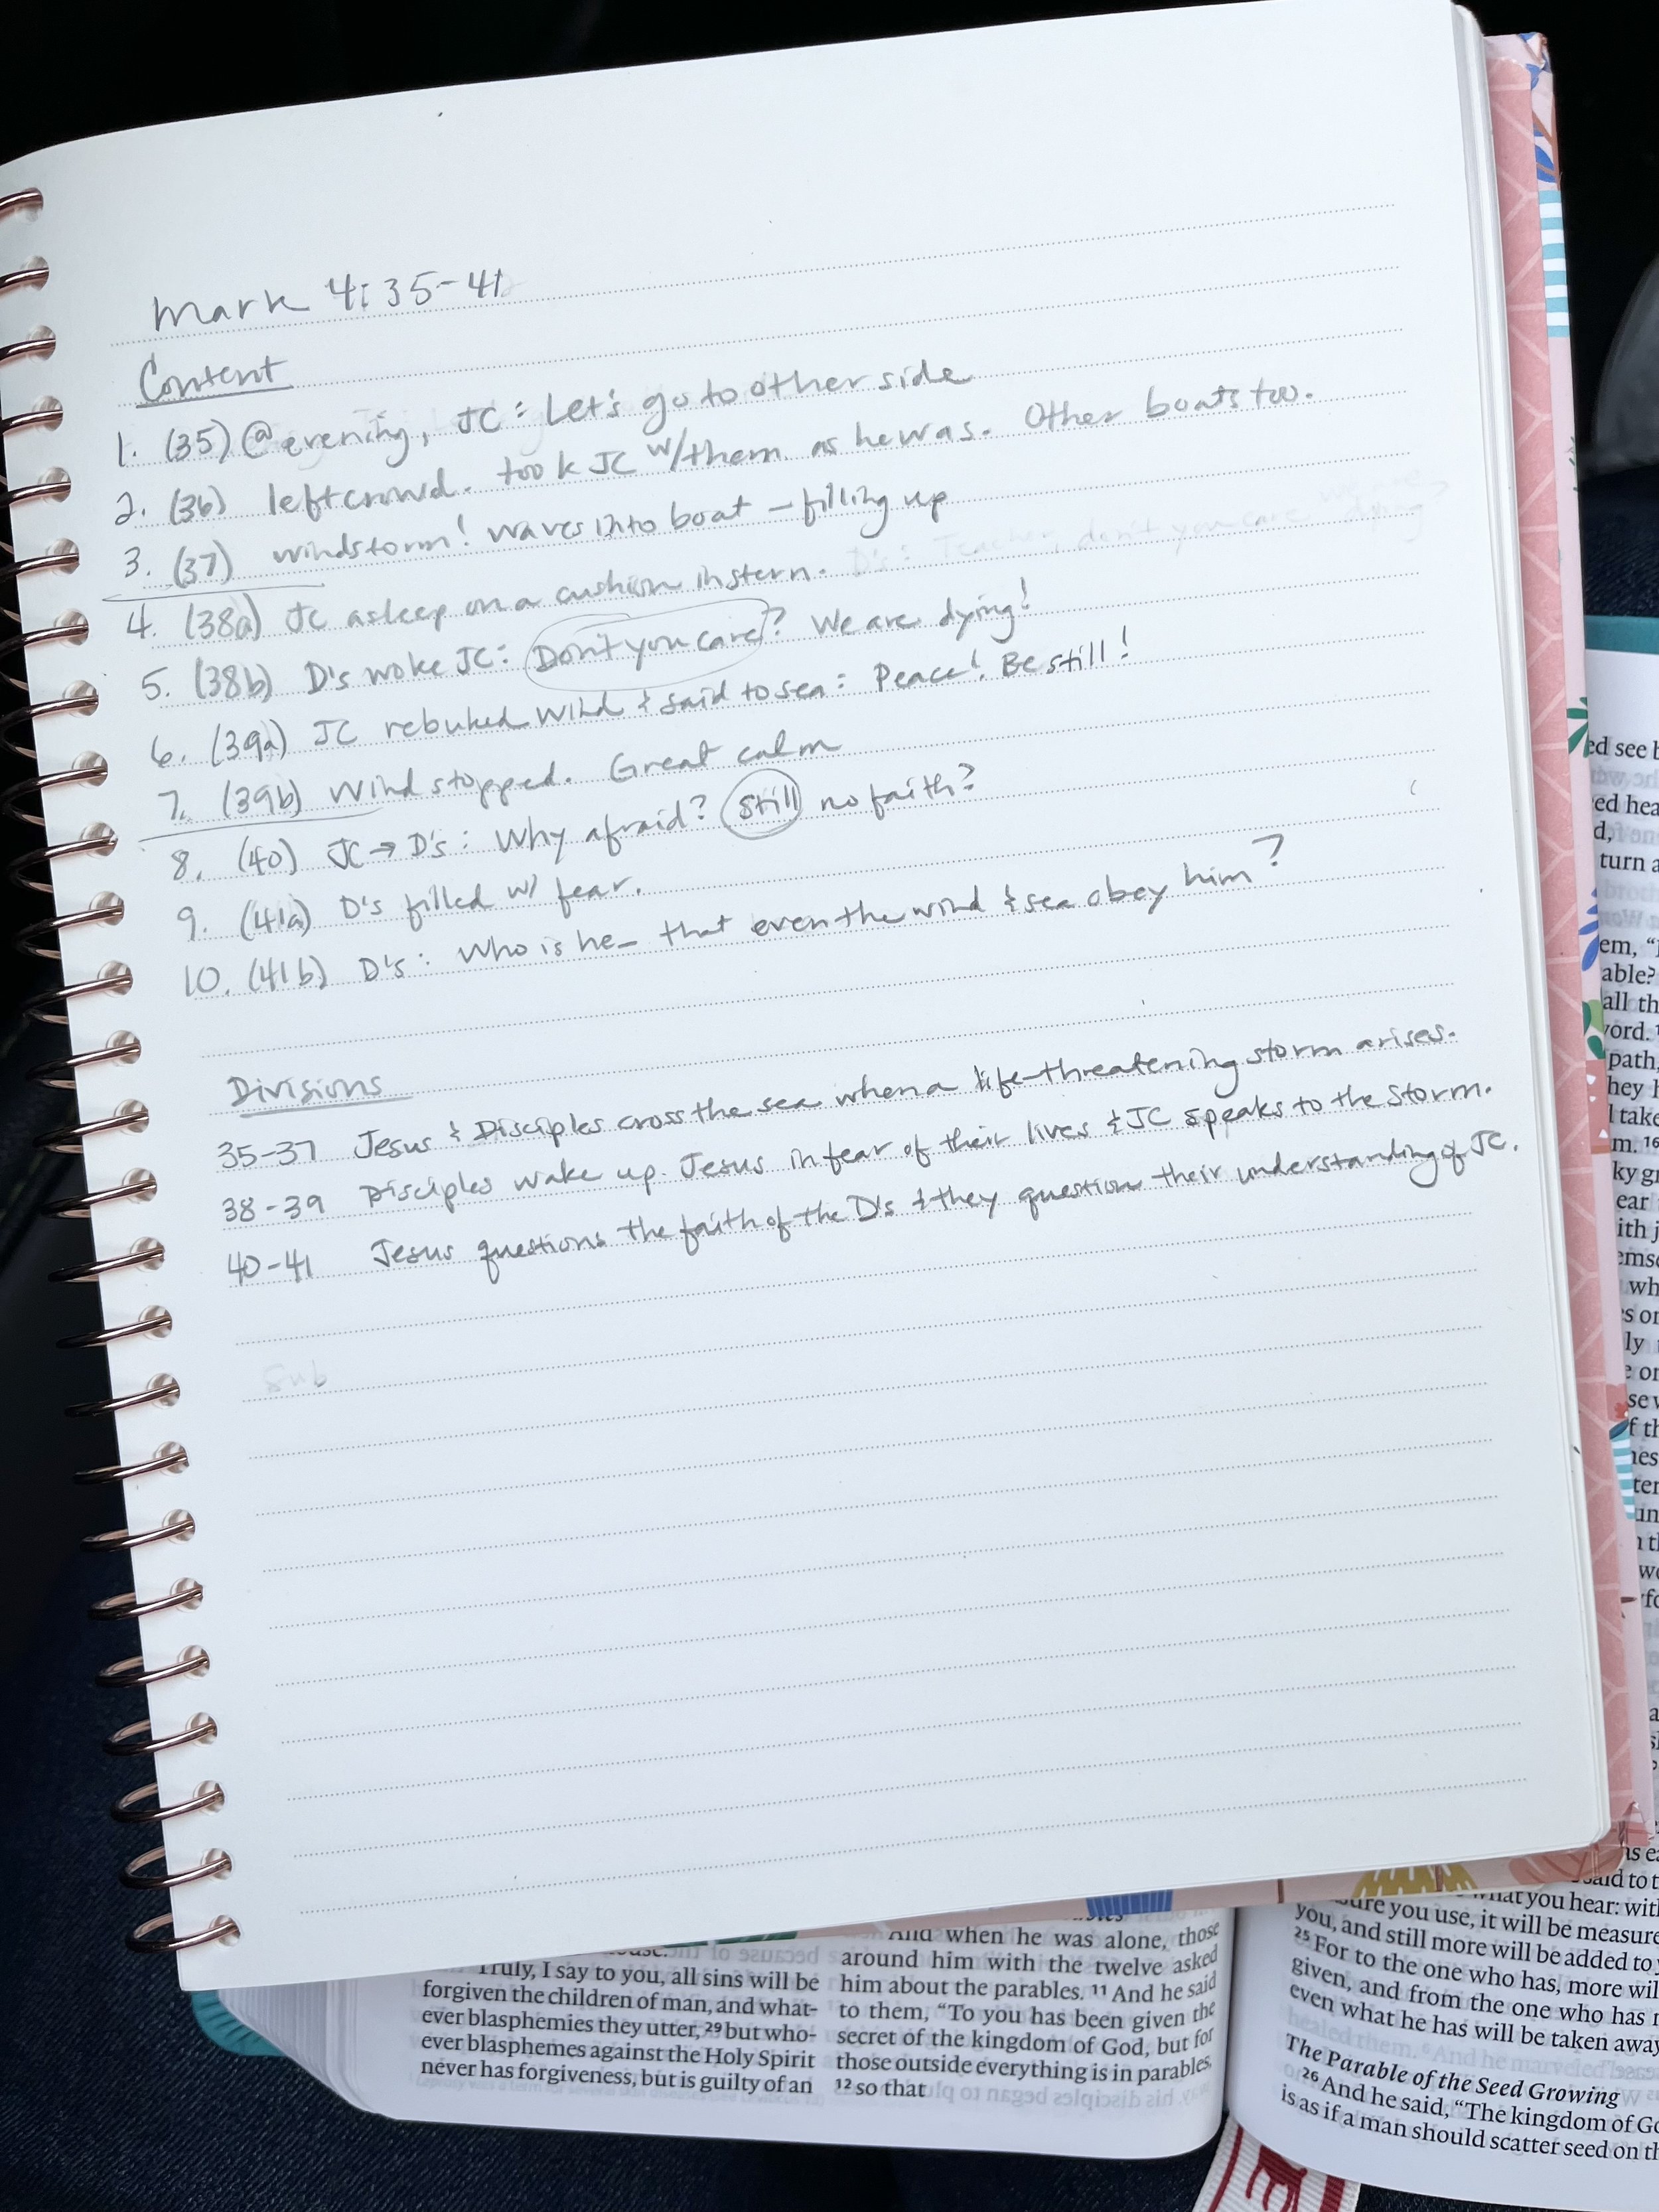 Mark 4:35-41
Content
1. (35) @ evening, JC: Let's go to other side
2. (36) left crowd. took JC w/them as he was. Other boats too.
3. (37) windstorm! waves into boat – filling up
4. (38a) JC asleep on a cushion in stern. D's: Teacher, don't you care we are dying?
5. (38b) D's woke JC: Don't you care? We are dying!
6. (39a) JC rebuked wind & said to sea: Peace! Be still!
7. (39b) Wind stopped. Great calm
8. (40) JC → D's: Why afraid? Still no faith?
9. (41a) D's filled w/ fear.
10. (41b) D's: Who is he – that even the wind & sea obey him?
Divisions
35-37 Jesus & Disciples cross the sea when a life-threatening storm arises.
38-39 Disciples wake up Jesus in fear of their lives & JC speaks to the storm.
40-41 Jesus questions the faith of the D's & they question their understanding of JC.
Sub
Truly, I say to you, all sins will be
forgiven the children of man, and what-
ever blasphemies they utter, 29 but who-
ever blasphemes against the Holy Spirit
never has forgiveness, but is guilty of an
And when he was alone, those
around him with the twelve asked
him about the parables. 11 And he said
to them, "To you has been given the
secret of the kingdom of God, but for
those outside everything is in parables,
12 so that
ed see
ed hea
d,
turn a
em, "
able?
all th
word.
path,
they
take
m. 16
ky gr
ear
ith j
emse
wh
s or
ly
said to t
what you hear: with
sure you use, it will be measure
you, and still more will be added to
25 For to the one who has, more wil
given, and from the one who has
even what he has will be taken away
The Parable of the Seed Growing
26 And he said, "The kingdom of Go
is as if a man should scatter seed on th